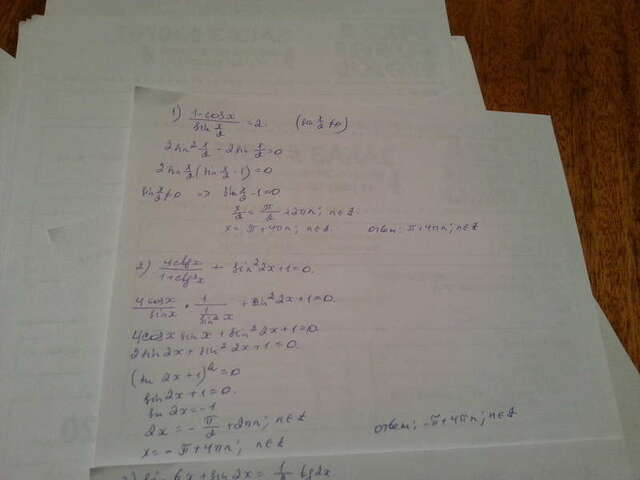 1) (1-cosx)/(sin x/2) = 2 (sin x/2 ≠0)
2sin² x/2 - 2sin x/2 = 0
2sin x/2 (sin x/2 - 1) = 0
sin x/2 ≠0 => sin x/2 - 1 = 0
x/2 = π/2 + 2πn; n∈Z
x = π + 4πn; n∈Z ответ: π + 4πn; n∈Z
2) 4ctgx/(1+ctg²x) + sin²2x + 1 = 0.
4cosx/sinx · 1/(1/sin²x) + sin²2x + 1 = 0.
4cosx sinx + sin²2x + 1 = 0
2sin2x + sin²2x + 1 = 0.
(sin2x + 1)² = 0
sin2x + 1 = 0.
sin2x = -1
2x = -π/2 + 2πn; n∈Z
x = -π + 4πn; n∈Z ответ: -π + 4πn; n∈Z